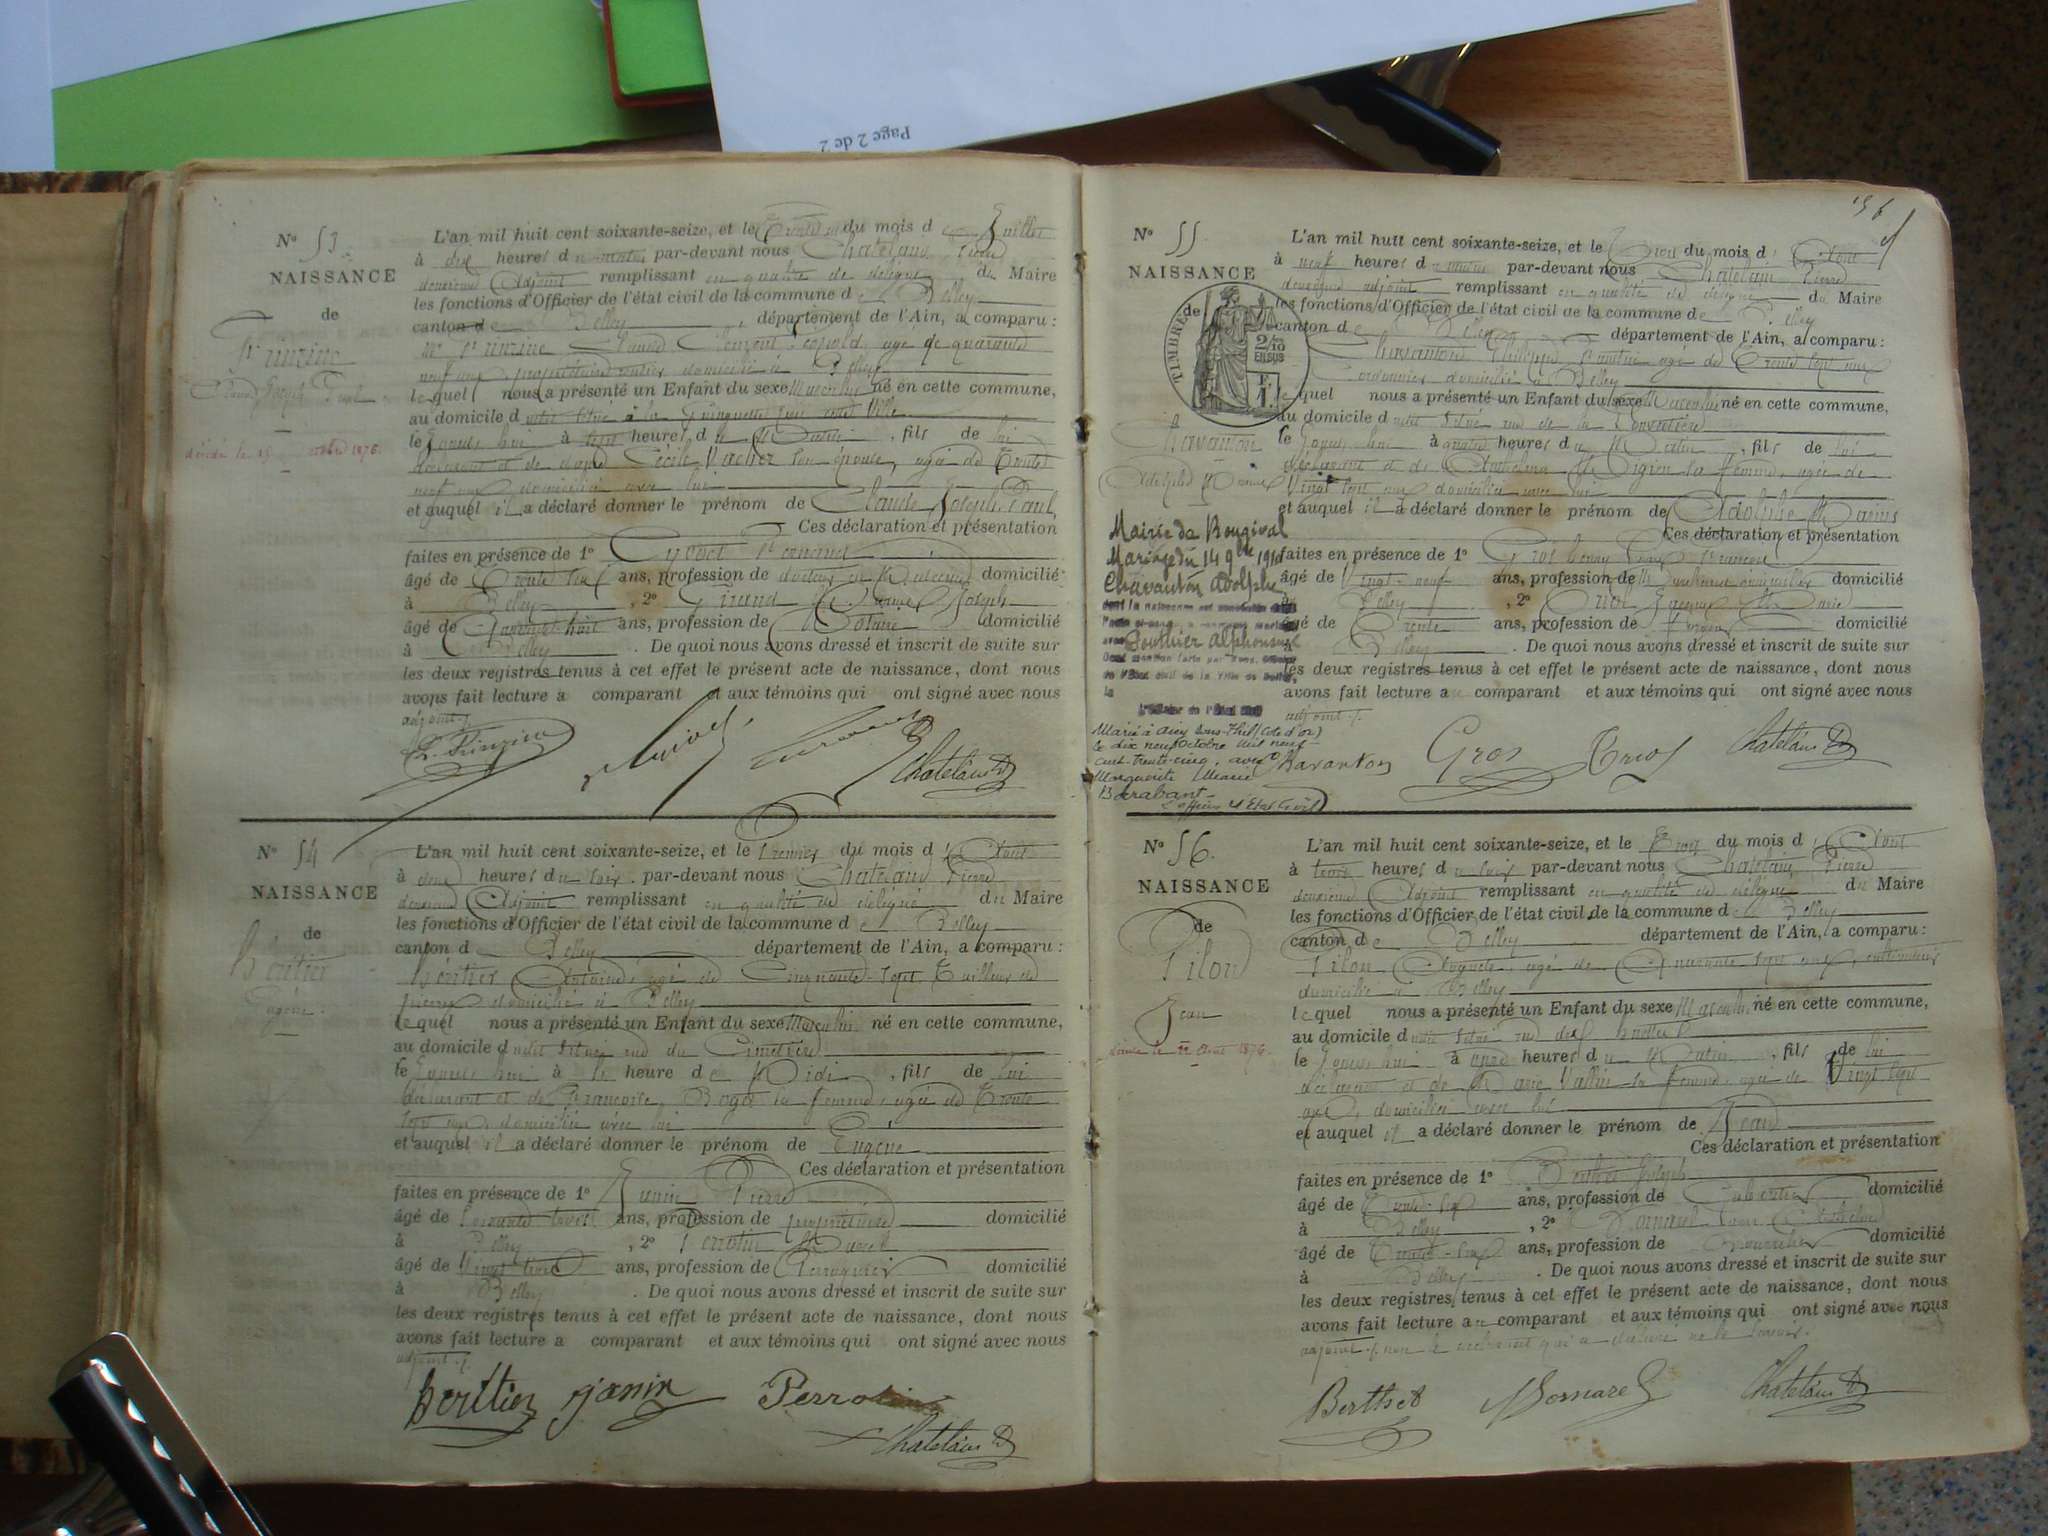 Page 2 de 2
N° 53
NAISSANCE
de
Prinzine
Claude Joseph Paul
décédé le 15 octobre 1876.
L'an mil huit cent soixante-seize, et le du mois de Juillet
à dix heures du matin par-devant nous Chatelain Pierre
deuxième Adjoint remplissant en qualité de délégué du Maire
les fonctions d'Officier de l'état civil de la commune de Belley
canton de Belley, département de l'Ain, a comparu :
Mr Prinzine Claude Clément Léopold, agé de quarante
neuf ans propriétaire rentier domicilié à Belley
lequel nous a présenté un Enfant du sexe Masculin né en cette commune,
au domicile d situé à la Guinguette
le Jourd'hui à heures du Matin, fils de lui
déclarant et de dame Cécile Vacher son épouse, agée de Trente
neuf ans domiciliée avec lui
et auquel il a déclaré donner le prénom de Claude Joseph Paul
Ces déclaration et présentation
faites en présence de 1°
âgé de Trente six ans, profession de docteur en Médecine domicilié
à Belley, 2° Girand Joseph
âgé de Quarante huit ans, profession de Notaire domicilié
à Belley. De quoi nous avons dressé et inscrit de suite sur
les deux registres tenus à cet effet le présent acte de naissance, dont nous
avons fait lecture a comparant et aux témoins qui ont signé avec nous
adjoint.
L. Prinzine
Chatelain
N° 54
NAISSANCE
de
héritier
Eugène.
L'an mil huit cent soixante-seize, et le Premier du mois d'Aout
à deux heures du soir par-devant nous Chatelain Pierre
deuxième Adjoint remplissant en qualité de délégué du Maire
les fonctions d'Officier de l'état civil de la commune de Belley
canton de Belley département de l'Ain, a comparu :
héritier Antoine, agé de Cinquante-sept, Tailleur de
pierres domicilié à Belley
lequel nous a présenté un Enfant du sexe Masculin né en cette commune,
au domicile d situé rue du Cimetière
le Jourd'hui à heure de Midi, fils de lui
déclarant et de Françoise Roga sa femme, agée de Trente
sept ans domiciliée avec lui
et auquel il a déclaré donner le prénom de Eugène
Ces déclaration et présentation
faites en présence de 1° Junin Pierre
âgé de ans, profession de propriétaire domicilié
à Belley, 2° Perrotin Marcel
âgé de Vingt trois ans, profession de Perruquier domicilié
à Belley. De quoi nous avons dressé et inscrit de suite sur
les deux registres tenus à cet effet le présent acte de naissance, dont nous
avons fait lecture a comparant et aux témoins qui ont signé avec nous
adjoint.
heritier janin Perrotin
Chatelain
156
N° 55.
NAISSANCE
de
TIMBRE
2/10 EN SUS
F. 1.
Chavanton
Adolphe Marius
Mairie de Bougival
Mariage du 14 9bre 1910
Chavanton Adolphe
dont la naissance est constatée
avec Gouthier Alphonsine
Dont mention faite par nous, Officier
de l'Etat civil de la Ville de Belley,
le
L'Officier de l'Etat Civil
Marié à Aisy sous-Thil (Côte d'or)
le dix neuf Octobre mil neuf
cent-trente-cinq, avec
Marguerite Marie
Barabant
L'officier d'Etat Civil
L'an mil huit cent soixante-seize, et le Trois du mois d'Aout
à neuf heures du matin par-devant nous Chatelain Pierre
deuxième adjoint remplissant en qualité de délégué du Maire
les fonctions d'Officier de l'état civil de la commune de Belley
canton de Belley département de l'Ain, a comparu :
Chavanton Philippe agé de Trente sept ans
Cordonnier domicilié à Belley
lequel nous a présenté un Enfant du sexe Masculin né en cette commune,
au domicile d situé rue de la
le Jourd'hui à quatre heures du Matin, fils de lui
déclarant et de Anthelma sa femme, agée de
Vingt sept ans domiciliée avec lui
et auquel il a déclaré donner le prénom de Adolphe Marius
Ces déclaration et présentation
faites en présence de 1° Gros François
âgé de Vingt-neuf ans, profession de domicilié
à Belley, 2° Triol
âgé de Trente ans, profession de domicilié
à Belley. De quoi nous avons dressé et inscrit de suite sur
les deux registres tenus à cet effet le présent acte de naissance, dont nous
avons fait lecture au comparant et aux témoins qui ont signé avec nous
adjoint.
Chavanton Gros Chatelain
N° 56.
NAISSANCE
de
Pilon
Jean
décédé le 22 Aout 1876.
L'an mil huit cent soixante-seize, et le Trois du mois d'Aout
à trois heures du soir par-devant nous Chatelain Pierre
deuxième Adjoint remplissant en qualité de délégué du Maire
les fonctions d'Officier de l'état civil de la commune de Belley
canton de Belley département de l'Ain, a comparu :
Pilon agé de Quarante sept ans, cultivateur
domicilié à Belley
lequel nous a présenté un Enfant du sexe Masculin né en cette commune,
au domicile d situé rue des
le Jourd'hui à onze heures du Matin, fils de lui
déclarant et de Marie Vallin sa femme, agée de Vingt sept
ans, domiciliée avec lui
et auquel il a déclaré donner le prénom de Jean
Ces déclaration et présentation
faites en présence de 1° Berthet Joseph
âgé de ans, profession de domicilié
à Belley, 2° Bornarel
âgé de ans, profession de domicilié
à Belley. De quoi nous avons dressé et inscrit de suite sur
les deux registres tenus à cet effet le présent acte de naissance, dont nous
avons fait lecture au comparant et aux témoins qui ont signé avec nous
adjoint, non le déclarant qui a déclaré ne le savoir.
Berthet Bornarel Chatelain